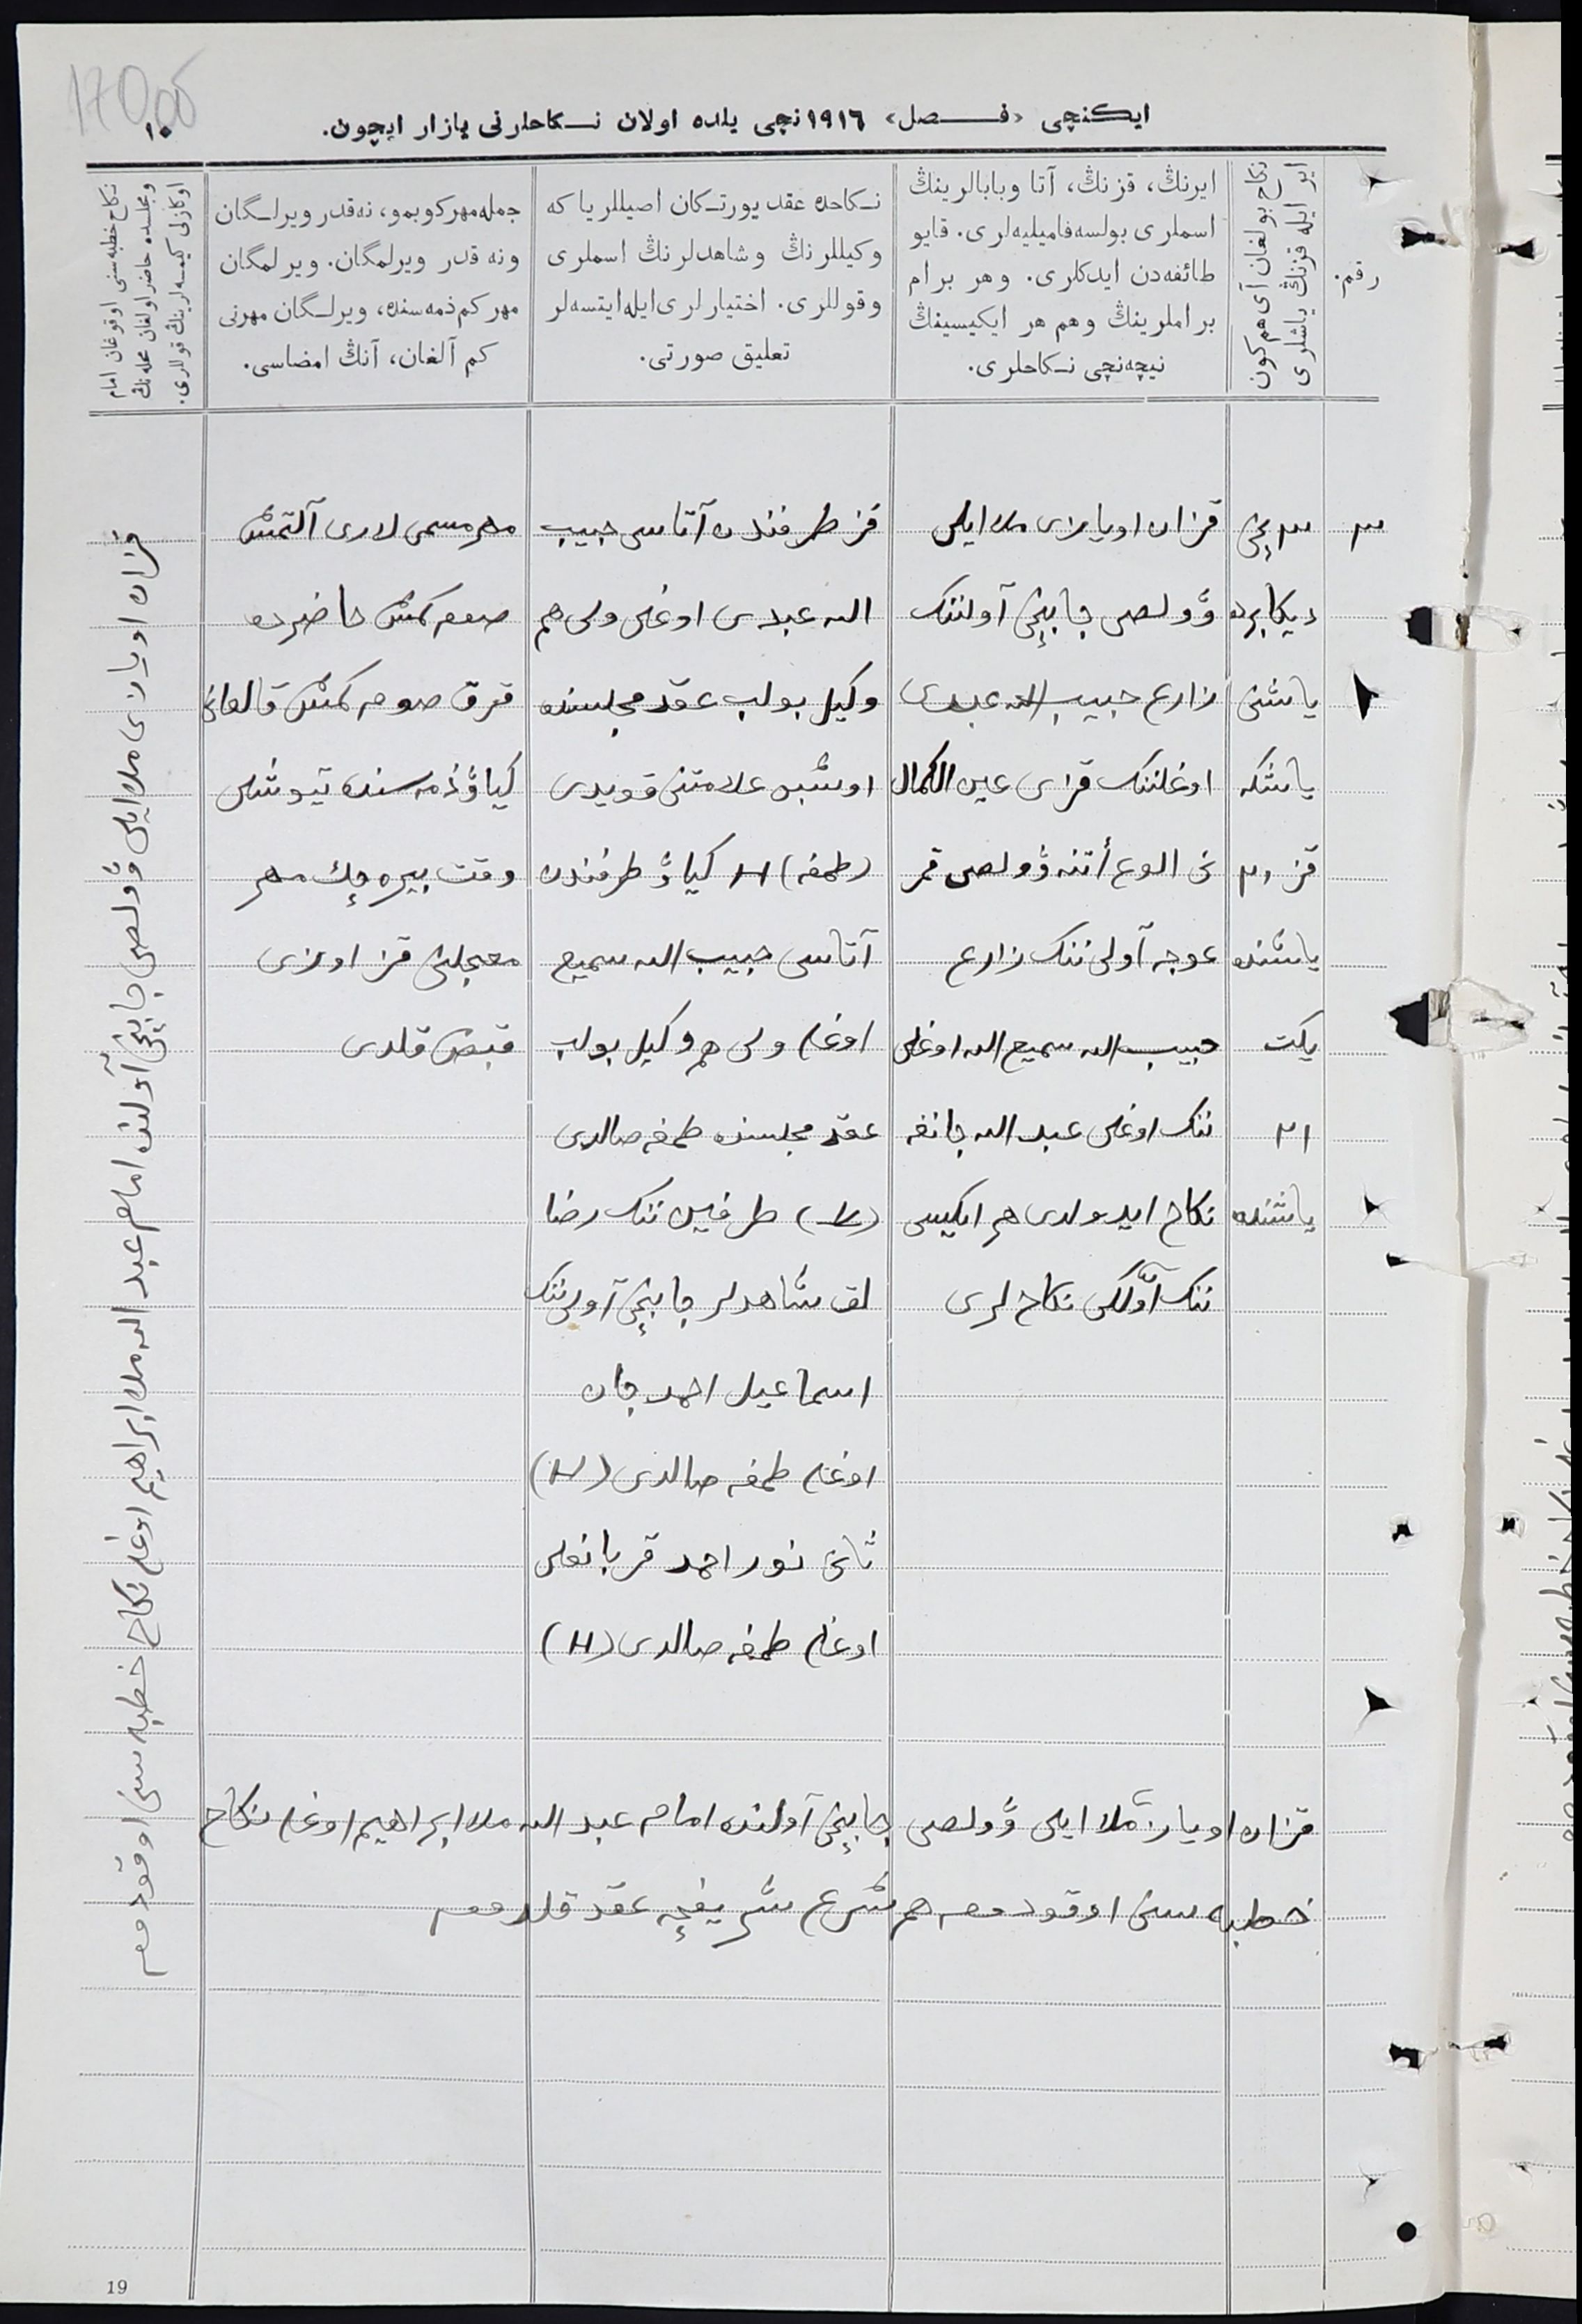 170,00
١٠
ايكنچی «فصل» ١٩١٦ نچی يلده اولان نكاحلرنی يازار ايچون.
رقم.
نكاح بولغان آی هم كون
اير ايله قزنڭ ياشلری
ايرنڭ، قزنڭ، آتا وبابالرينڭ
اسملری بولسه فاميليه‌لری. قايو
طائفه‌دن ايدكلری. وهر برام
براملرينڭ وهم هر ايكيسينڭ
نيچه‌نچی نكاحلری.
نكاحده عقد يورتكان اصيللر يا كه
وكيللرنڭ وشاهدلرنڭ اسملری
وقوللری. اختيارلری ايله ايتسه‌لر
تعليق صورتی.
جمله مهر كوبمو، نه‌قدر ويرلگان
ونه قدر ويرلمگان. ويرلمگان
مهر كم ذمه سنده، ويرلگان مهرنی
كم آلغان، آنڭ امضاسی.
نكاح خطبه‌سنی اوقوغان امام
ومجلسده حاضر اولغان محله‌نڭ
اوكازلی كيمسه‌لرينڭ قوللری.
٣
٣ نچی
ديكابرده
ياشنی
ياشكه
قز ٢١
ياشنده
يكت
٢١
ياشنده
قزان اويازی ملا ايلی
وۇلصی جابنچی آولننك
زارع حبيب الله عبدی
اوغلننك قزی عين الكمال
نی الوع أتنه وۇلصی قمر
عوجه آولی ننك زارع
حبيب الله سميع الله اوغلی
ننك اوغلی عبد الله جانغه
نكاح ايدولدی هر ايكيسی
ننك اوّلكی نكاح لری
قز طرفندن آتاسی حبيب
الله عبدی اوغلی ولی هم
وكيل بولب عقد مجلسنده
اوشبو علامتنی قويدی
(طمغه) H كياۇ طرفندن
آتاسی حبيب الله سميع
اوغلی ولی هم وكيل بولب
عقد مجلسنده طمغه صالدی
طرفين ننك رضا
لق شاهدلر جابنچی آولی ننك
اسماعيل احمد جان
اوغلی طمغه صالدی (H)
ثانی نور احمد قربانعلی
اوغلی طمغه صالدی (H)
مهر مسمی لاری آلتمش
صوم كمش حاضرده
قرق صوم كمش قالغانی
كياۇ ذمه سنده تيوشلی
وقت بيره چك مهر
معجلنی قز اوزی
قبض قلدی
قزان اويازی ملا ايلی وۇلصی جابنچی آولنده امام عبد الله ملا ابراهيم اوغلی نكاح خطبه سنی اوقودم
قزان اويازی ملا ايلی وۇلصی جابنچی آولنده امام عبد الله ملا ابراهيم اوغلی نكاح
خطبه سنی اوقودم هم شرع شريفچه عقد قلدم
19